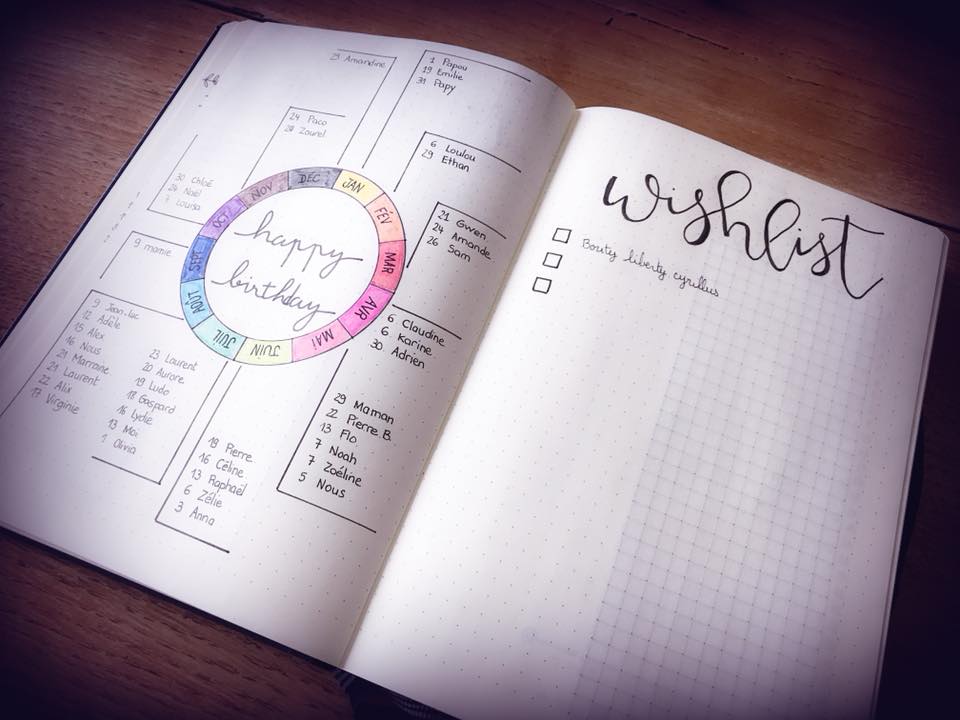 23 Amandine
1 Papou
19 Emilie
31 Papy
24 Paco
28 Zourel
6 Loulou
29 Ethan
30 Chloé
24 Naël
7 Louisa
21 Gwen
24 Amande
26 Sam
9 mamie
6 Claudine
6 Karine
30 Adrien
9 Jean.Luc
12 Adèle
15 Alex
16 Nous
21 Marraine
21 Laurent
22 Alix
17 Virginie
23 Laurent
20 Aurore
19 Ludo
18 Gaspard
16 Lydie
13 Moi
1 Olivia
19 Pierre
16 Céline
13 Raphaël
6 Zélie
3 Anna
29 Maman
22 Pierre B.
13 Flo
7 Noah
7 Zoéline
5 Nous
JAN
FÉV
MAR
AVR
MAI
JUIN
JUIL
AOÛT
SEPT
OCT
NOV
DEC
happy
birthday
wishlist
Bouty liberty cyrillus